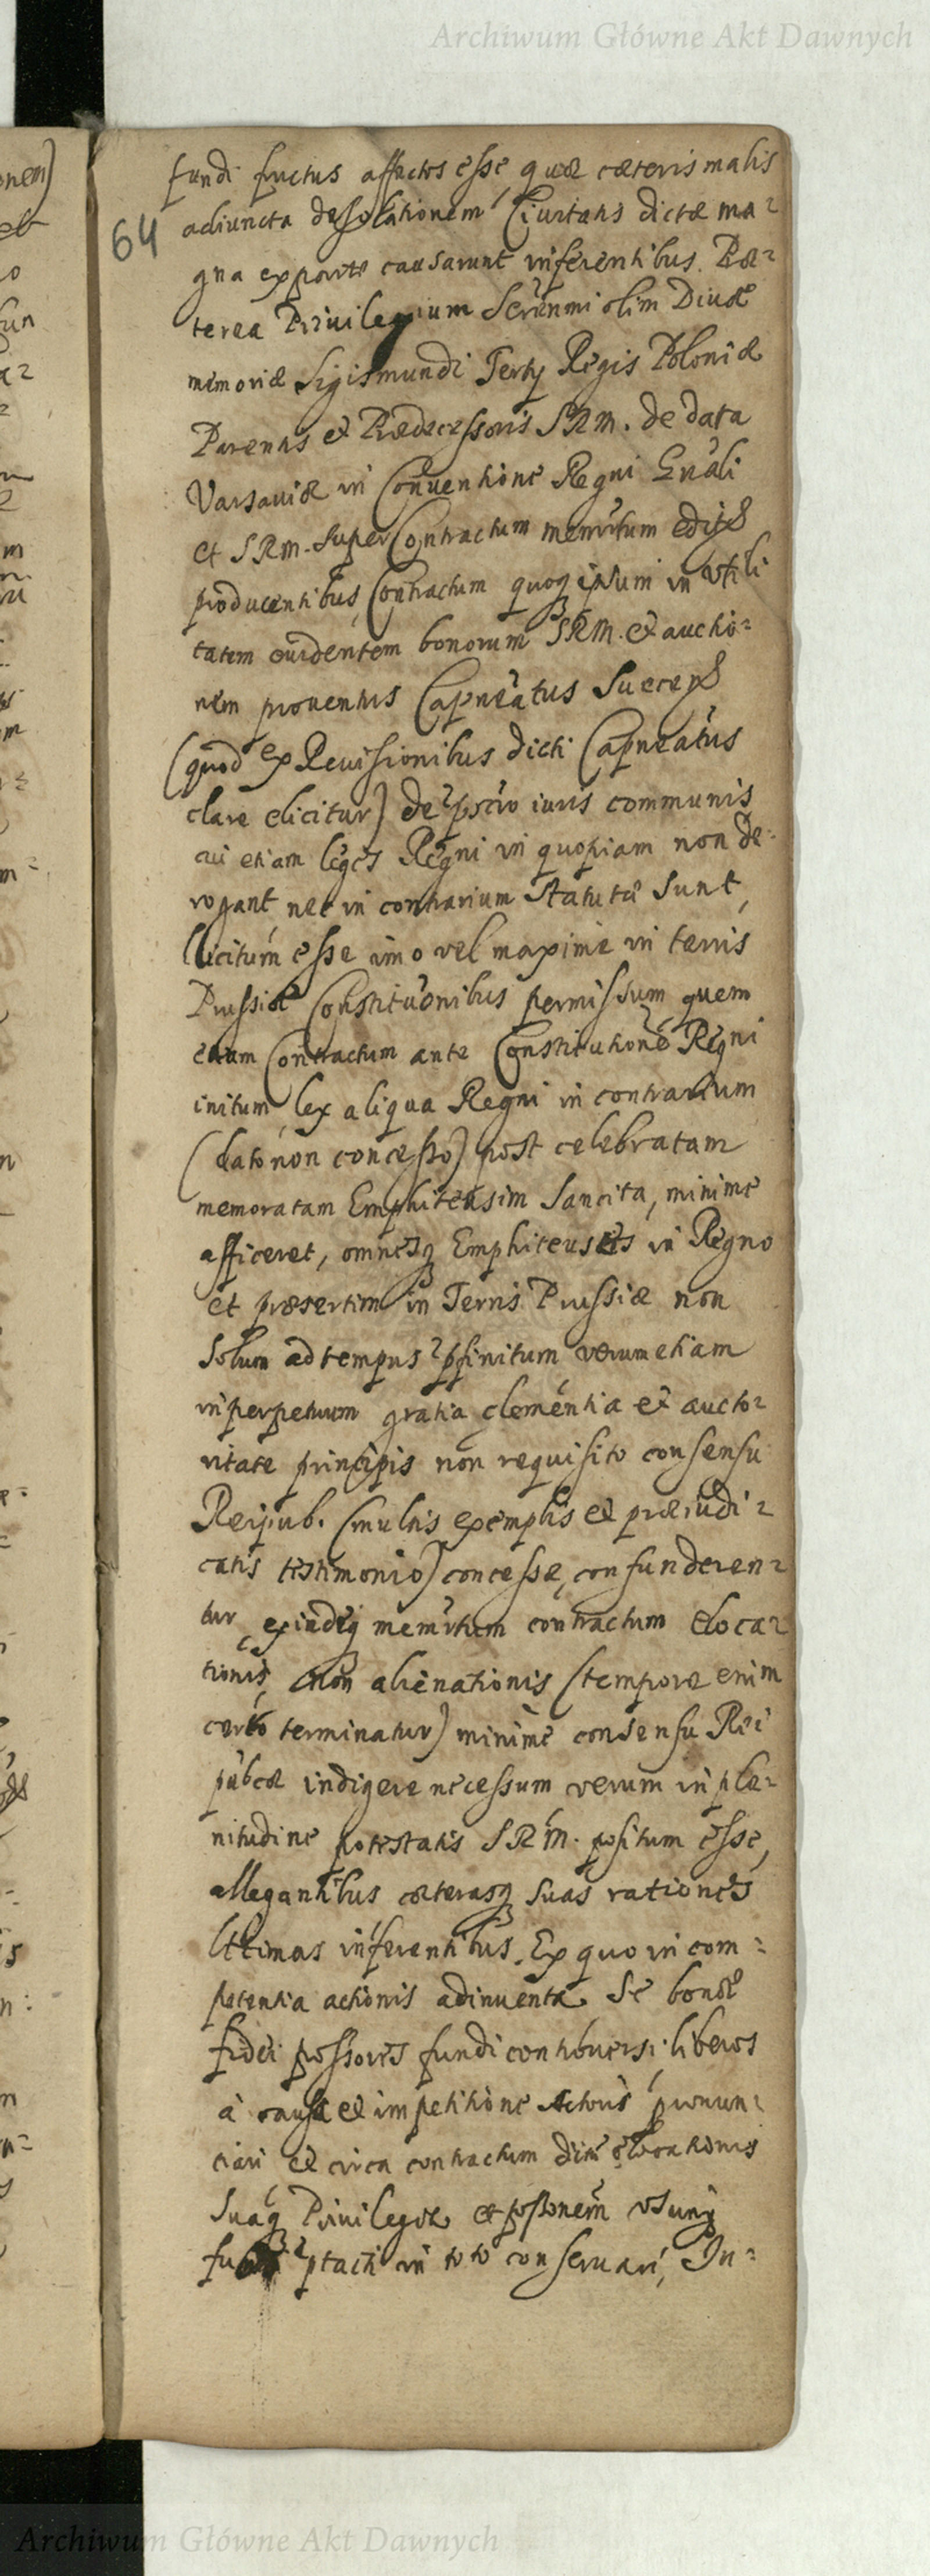 Archiwum Główne Akt Dawnych
64
fundi fructus affectos esse quæ cæteris malis
adiuncta desolationem Ciuitatis dictæ ma=
gna ex parte causarunt inferentibus. Præ=
terea Priuilegium Serenmi olim Diuæ
memoriæ Sigismundi Tertij Regis Poloniæ
Parentis et Prædecessoris SRM. de data
Varsauiæ in Conuentione Regni Gnali
et SRM. super Contractum memtum
producentibus, Contractum quoq ipsum in vtili
tatem euidentem bonorum SRM. et auctio=
nem prouentus Capneatus
(quod ex Reuisionibus dicti Capneatus
clare elicitur) de iuris communis
cui etiam leges Regni in quopiam non de=
rogant nec in contrarium statutæ sunt,
licitum esse imo vel maxime in terris
Prussiæ Constitutionibus permissum quem
etiam Contractum ante Constitutione Regni
initum, lex aliqua Regni in contrarium
(dato non concesso) post celebratam
memoratam Emphiteusim sancita, minime
afficeret, omnesq Emphiteuses in Regno
et præsertim in Terris Prussiæ non
solum ad tempus pfinitum verum etiam
in perpetuum gratia clementia et aucto=
ritate principis non requisito consensu
Reipub. (multis exemplis et præiudi=
catis testimonio) concessæ, confunderen=
tur, exindeq memtum contractum eloca=
tionis, non alienationis (tempore enim
certo terminatur) minime consensu Rei
pubcæ indigere necessum verum in ple=
nitudine potestatis SRM. positum esse,
allegantibus cæterasq suas rationes
vltimas inferentibus. Ex quo in com=
petentia actionis adinuenta se bonæ
fidei possores fundi controuersi liberos
à causa et impetitione Actoris pronun=
ciari et circa contractum elocationis
suaq Priuilegia et possonem
ptacti in toto conseruari, In=
Archiwum Główne Akt Dawnych